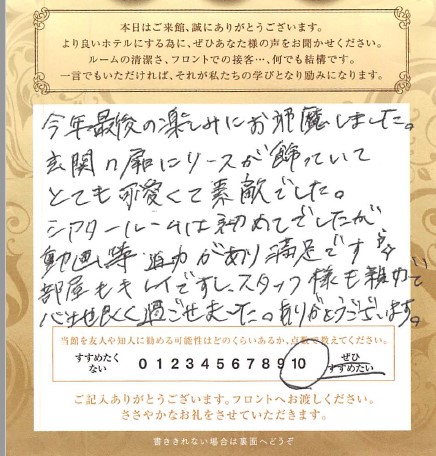 本日はご来館、誠にありがとうございます。
より良いホテルにする為に、ぜひあなた様の声をお聞かせください。
ルームの清潔さ、フロントでの接客…、何でも結構です。
一言でもいただければ、それが私たちの学びとなり励みになります。
今年最後の楽しみにお邪魔しました。
玄関の扉にリースが飾っていて
とても可愛くて素敵でした。
シアタールームは初めてでしたが
動画等迫力があり満足です
部屋もキレイですし、スタッフ様も親切で
心地良く過ごせました。ありがとうございます。
当館を友人や知人に勧める可能性はどのくらいあるか、点数で教えてください。
すすめたくない 0 1 2 3 4 5 6 7 8 9 10 ぜひすすめたい
ご記入ありがとうございます。フロントへお渡しください。
ささやかなお礼をさせていただきます。
書ききれない場合は裏面へどうぞ